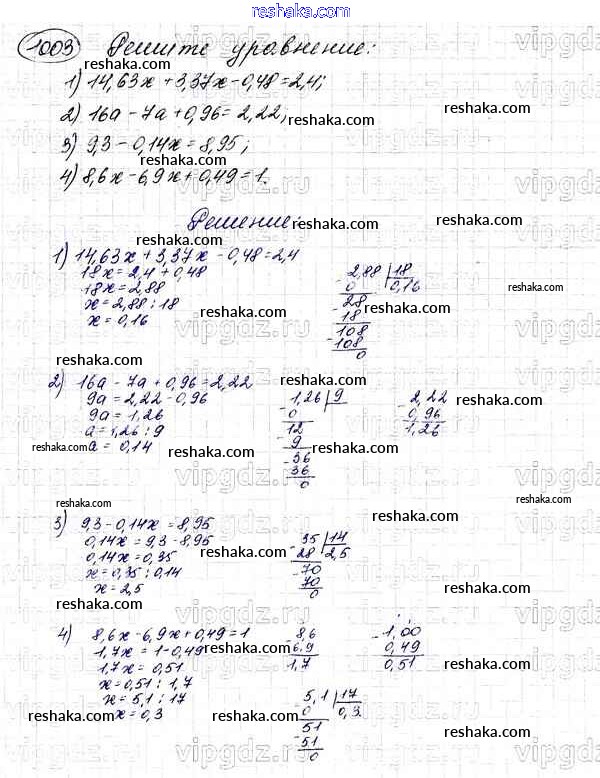 reshaka.com
1003 Решите уравнение:
1) 14,63x + 3,37x - 0,48 = 2,4;
2) 16a - 7a + 0,96 = 2,22;
3) 9,3 - 0,14x = 8,95;
4) 8,6x - 6,9x + 0,49 = 1.
Решение
1) 14,63x + 3,37x - 0,48 = 2,4
18x = 2,4 + 0,48
18x = 2,88
x = 2,88 : 18
x = 0,16
2,88 | 18
0 | 0,16
28
- 18
108
- 108
0
2) 16a - 7a + 0,96 = 2,22
9a = 2,22 - 0,96
9a = 1,26
a = 1,26 : 9
a = 0,14
- 1,26 | 9
0
12
- 9
- 36
36
0
- 2,22
0,96
1,26
3) 9,3 - 0,14x = 8,95
0,14x = 9,3 - 8,95
0,14x = 0,35
x = 0,35 : 0,14
x = 2,5
- 35 | 14
28 | 2,5
- 70
70
0
4) 8,6x - 6,9x + 0,49 = 1
1,7x = 1 - 0,49
1,7x = 0,51
x = 0,51 : 1,7
x = 5,1 : 17
x = 0,3
- 8,6
6,9
1,7
- 1,00
0,49
0,51
- 5,1 | 17
0 | 0,3
- 51
51
0
reshaka.com
vipgdz.ru